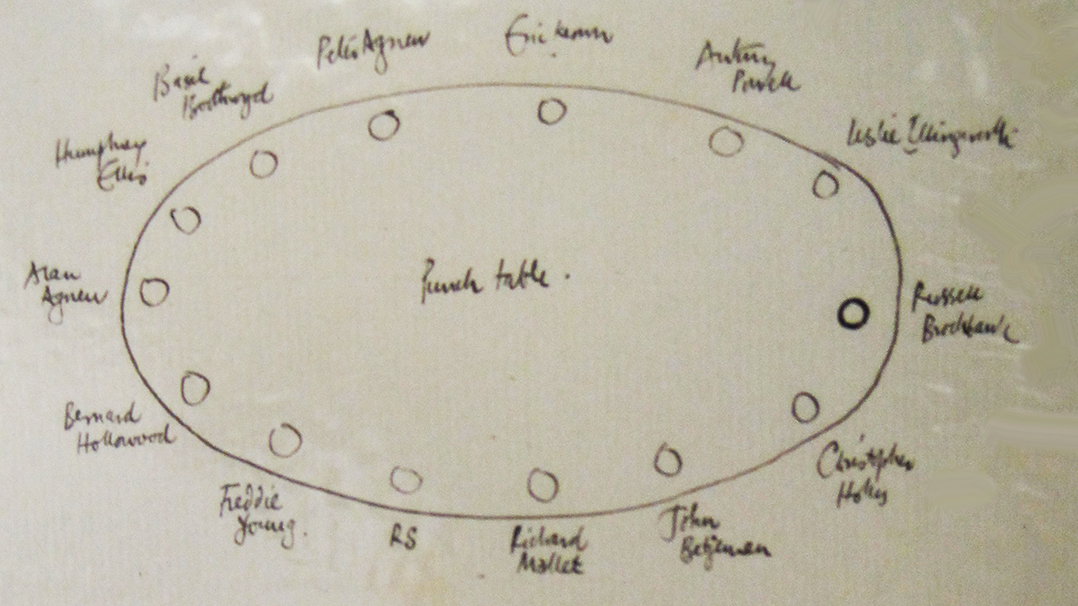 Peter Agnew
Eric Keown
Antony
Powell
Leslie Illingworth
Basil
Boothroyd
Humphrey
Ellis
Alan
Agnew
Punch table.
Russell
Brockbank
Bernard
Hollowood
Freddie
Young.
RS
Richard
Mallet
John
Betjeman
Christopher
Hollis